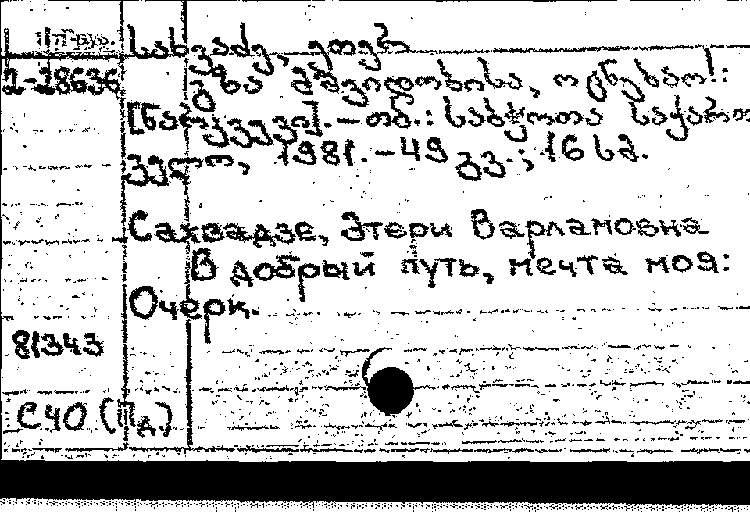 სახვაძე, ეთერ
2-28636 გზა მშვიდობისა, ოცნებაო!:
[ნარკვევი]. – თბ.: საბჭოთა საქართ
ველო, 1981. – 49 გვ.; 16 სმ.
Сахвадзе, Этери Варламовна
В добрый путь, мечта моя:
Очерк.
81343
СЧО (Пд)